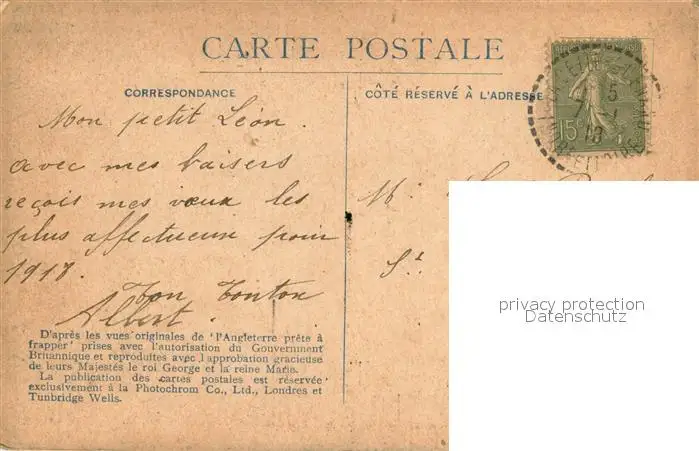 CARTE POSTALE
CORRESPONDANCE
CÔTÉ RÉSERVÉ À L'ADRESSE
15
Mon petit Léon
avec mes baisers
reçois mes vœux les
plus affectueux pour
1918.
Ton Tonton
Albert.
M.
St
D'après les vues originales de "l'Angleterre prête à
frapper" prises avec l'autorisation du Gouvernment
Britannique et reproduites avec l'approbation gracieuse
de leurs Majestés le roi George et la reine Marie.
La publication des cartes postales est réservée
exclusivement à la Photochrom Co., Ltd., Londres et
Tunbridge Wells.
privacy protection
Datenschutz